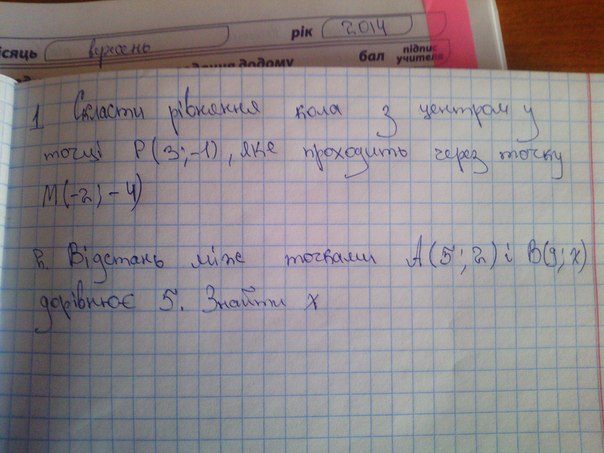 ісяць вересень рік 2014
ведення додому бал підпис учителя
1 Скласти рівняння кола з центром у
точці P(3;-1), яке проходить через точку
M(-2;-4)
2. Відстань між точками A(5;2) і B(9;x)
дорівнює 5. Знайти x